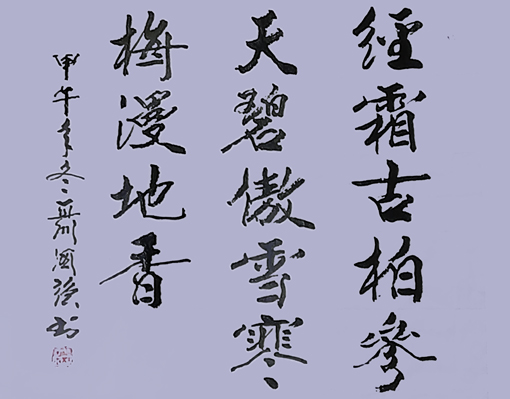 經霜古柏參
天碧傲雪寒
梅漫地香
甲午年冬聶國強书